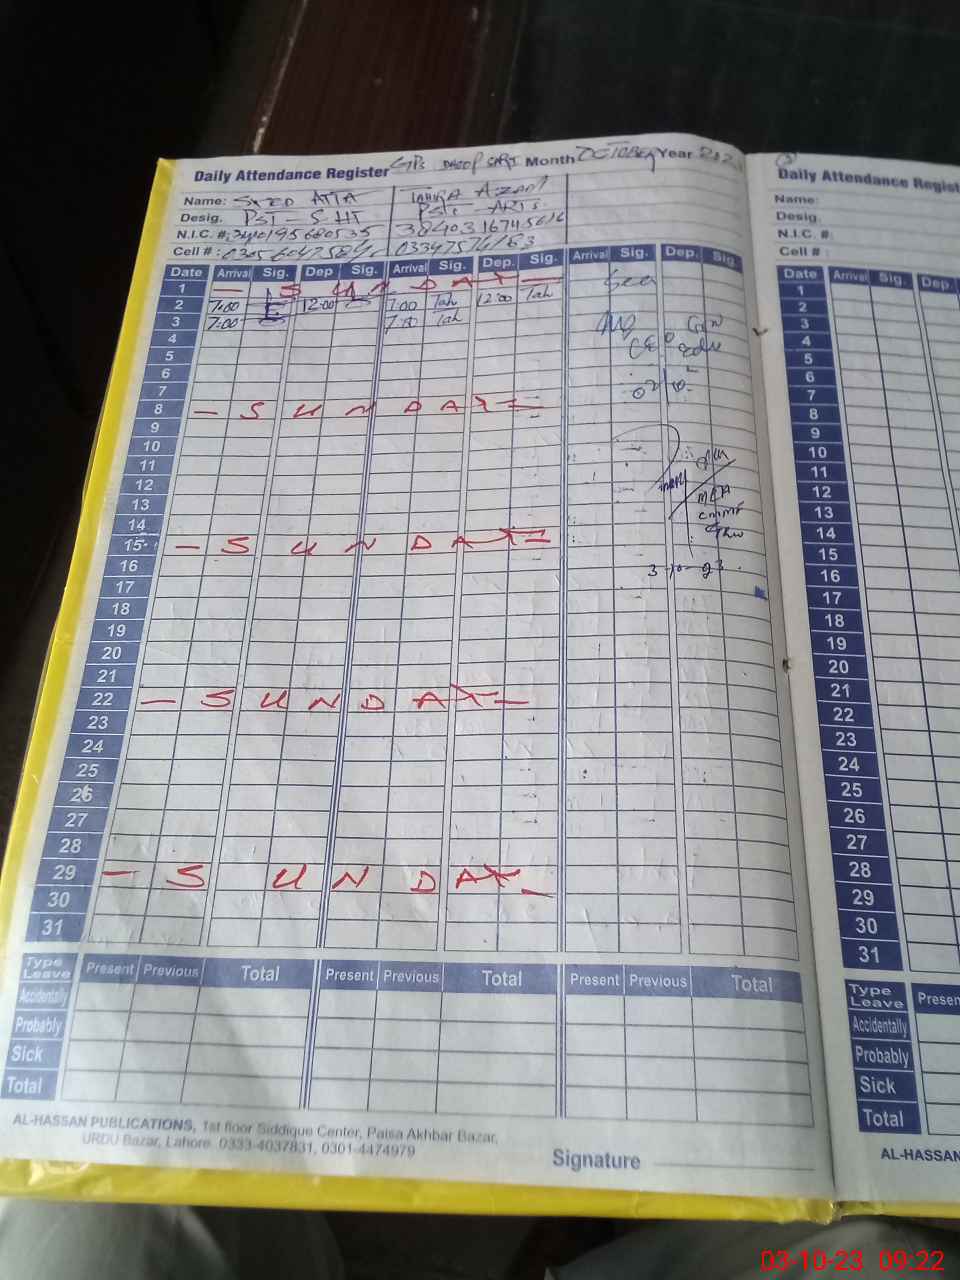 Daily Attendance Register GPS DHOOP SARI Month OCTOBER Year 202
Name: SYED ATTA
Desig. PST - SHT
N.I.C. #:
Cell #:
TAHIRA AZAM
PST - ARTS
38403 1674 5616
03347576163
Date Arrival Sig. Dep Sig. Arrival Sig. Dep. Sig. Arrival Sig. Dep. Sig.
1 - S U N D A Y -
2 7:00 12:00 7:00 Tah 12:00 Tah
3 7:00 7:00 Tah
4
5
6
7
8 - S U N D A Y -
9
10
11
12
13
14
15 - S U N D A Y -
16
17
18
19
20
21
22 - S U N D A Y -
23
24
25
26
27
28
29 - S U N D A Y -
30
31
Seen
CEO
MEA
3-10-23
Type Leave Present Previous Total Present Previous Total Present Previous Total
Accidentally
Probably
Sick
Total
AL-HASSAN PUBLICATIONS, 1st floor Siddique Center, Paisa Akhbar Bazar,
URDU Bazar, Lahore. 0333-4037831, 0301-4474979
Signature
Daily Attendance Regist
Name:
Desig.
N.I.C. #:
Cell #:
Date Arrival Sig. Dep.
1
2
3
4
5
6
7
8
9
10
11
12
13
14
15
16
17
18
19
20
21
22
23
24
25
26
27
28
29
30
31
Type Leave Presen
Accidentally
Probably
Sick
Total
AL-HASSAN
03-10-23 09:22